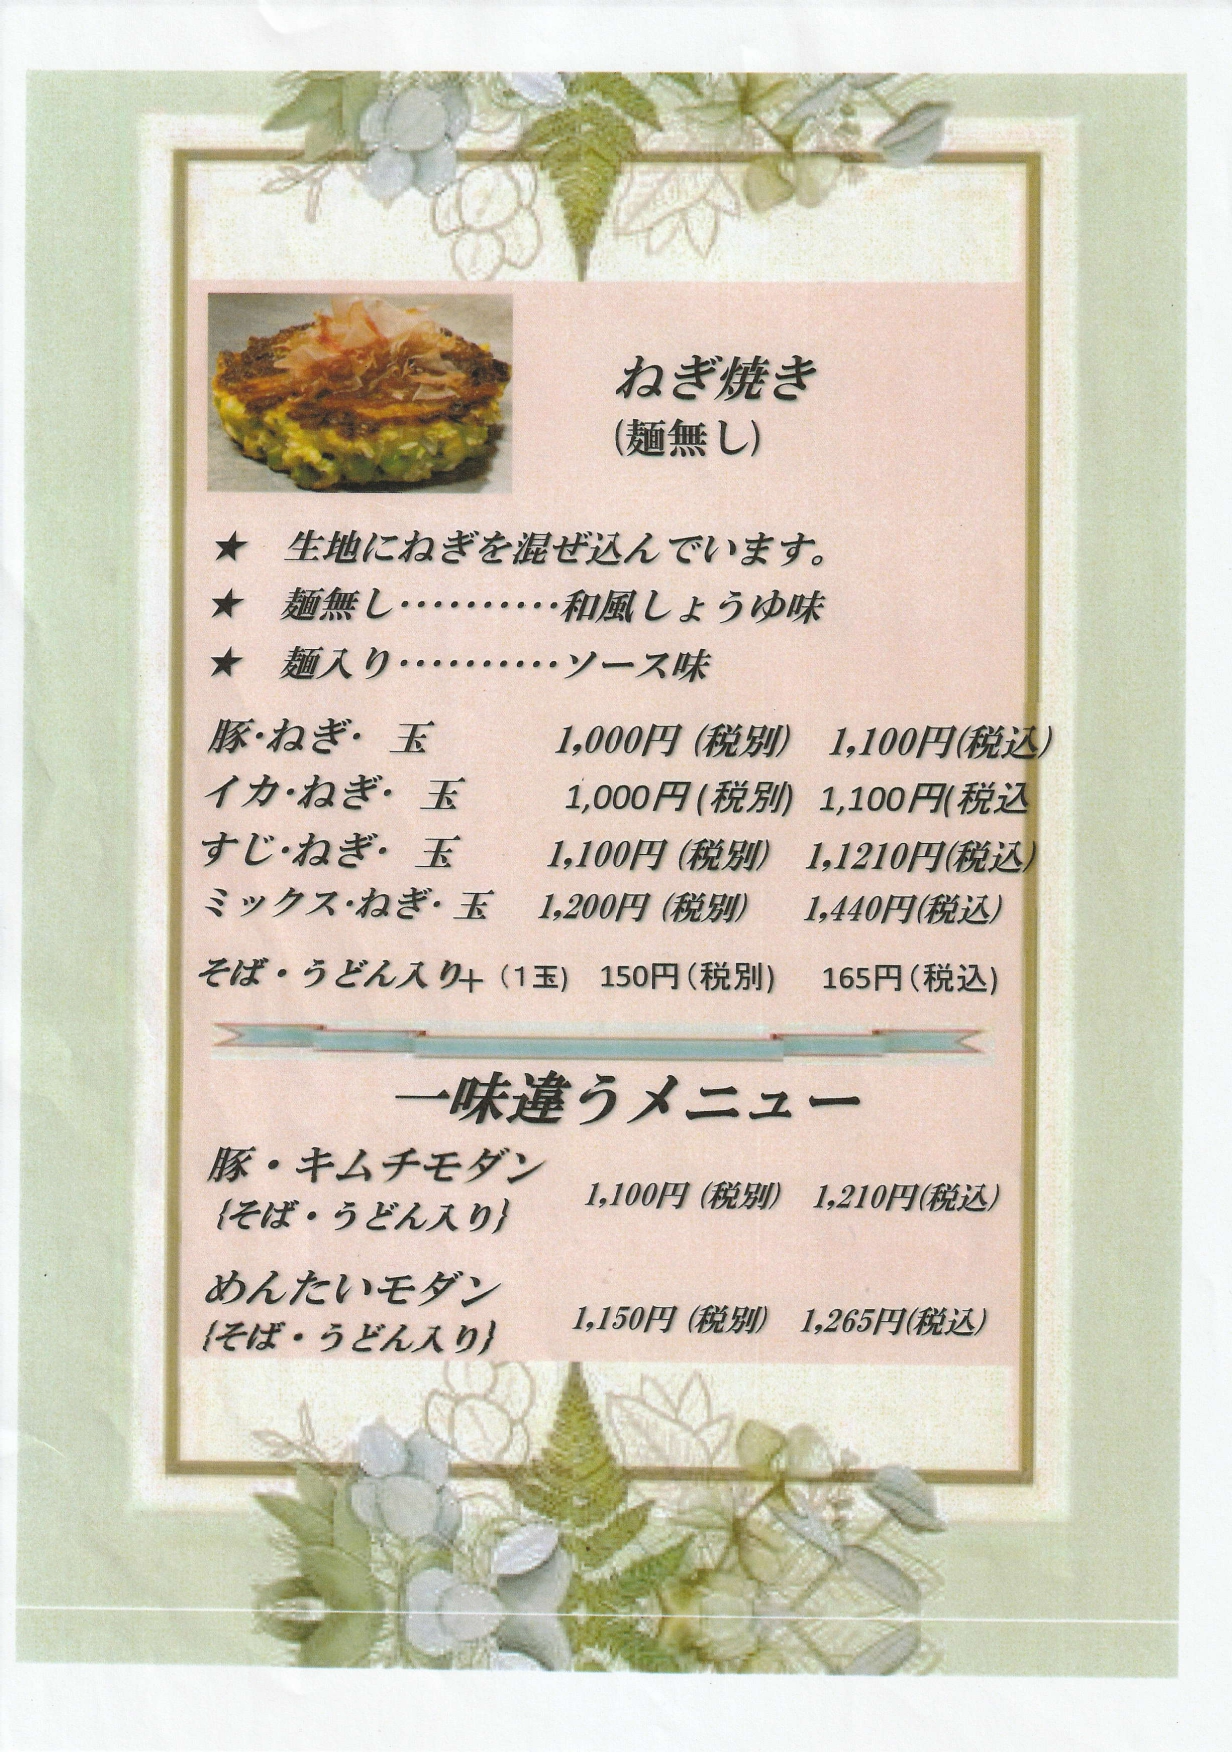 ねぎ焼き
(麺無し)
★ 生地にねぎを混ぜ込んでいます。
★ 麺無し‥‥‥‥‥和風しょうゆ味
★ 麺入り‥‥‥‥‥ソース味
豚・ねぎ・ 玉 1,000円 (税別) 1,100円(税込)
イカ・ねぎ・ 玉 1,000円 (税別) 1,100円(税込
すじ・ねぎ・ 玉 1,100円 (税別) 1,1210円(税込)
ミックス・ねぎ・ 玉 1,200円 (税別) 1,440円(税込)
そば・うどん入り+ (1玉) 150円(税別) 165円(税込)
一味違うメニュー
豚・キムチモダン
{そば・うどん入り} 1,100円 (税別) 1,210円(税込)
めんたいモダン
{そば・うどん入り} 1,150円 (税別) 1,265円(税込)